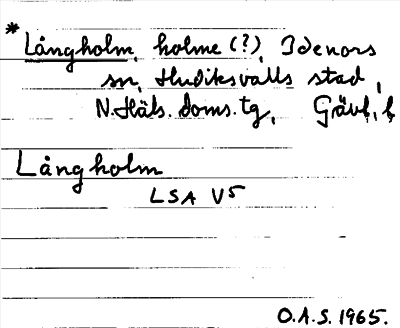 * Långholm, holme (?), Idenors
sn, Hudiksvalls stad,
N. Häls. doms. tg, Gävl. l
Långholm
LSA V5
O.A.S. 1965.